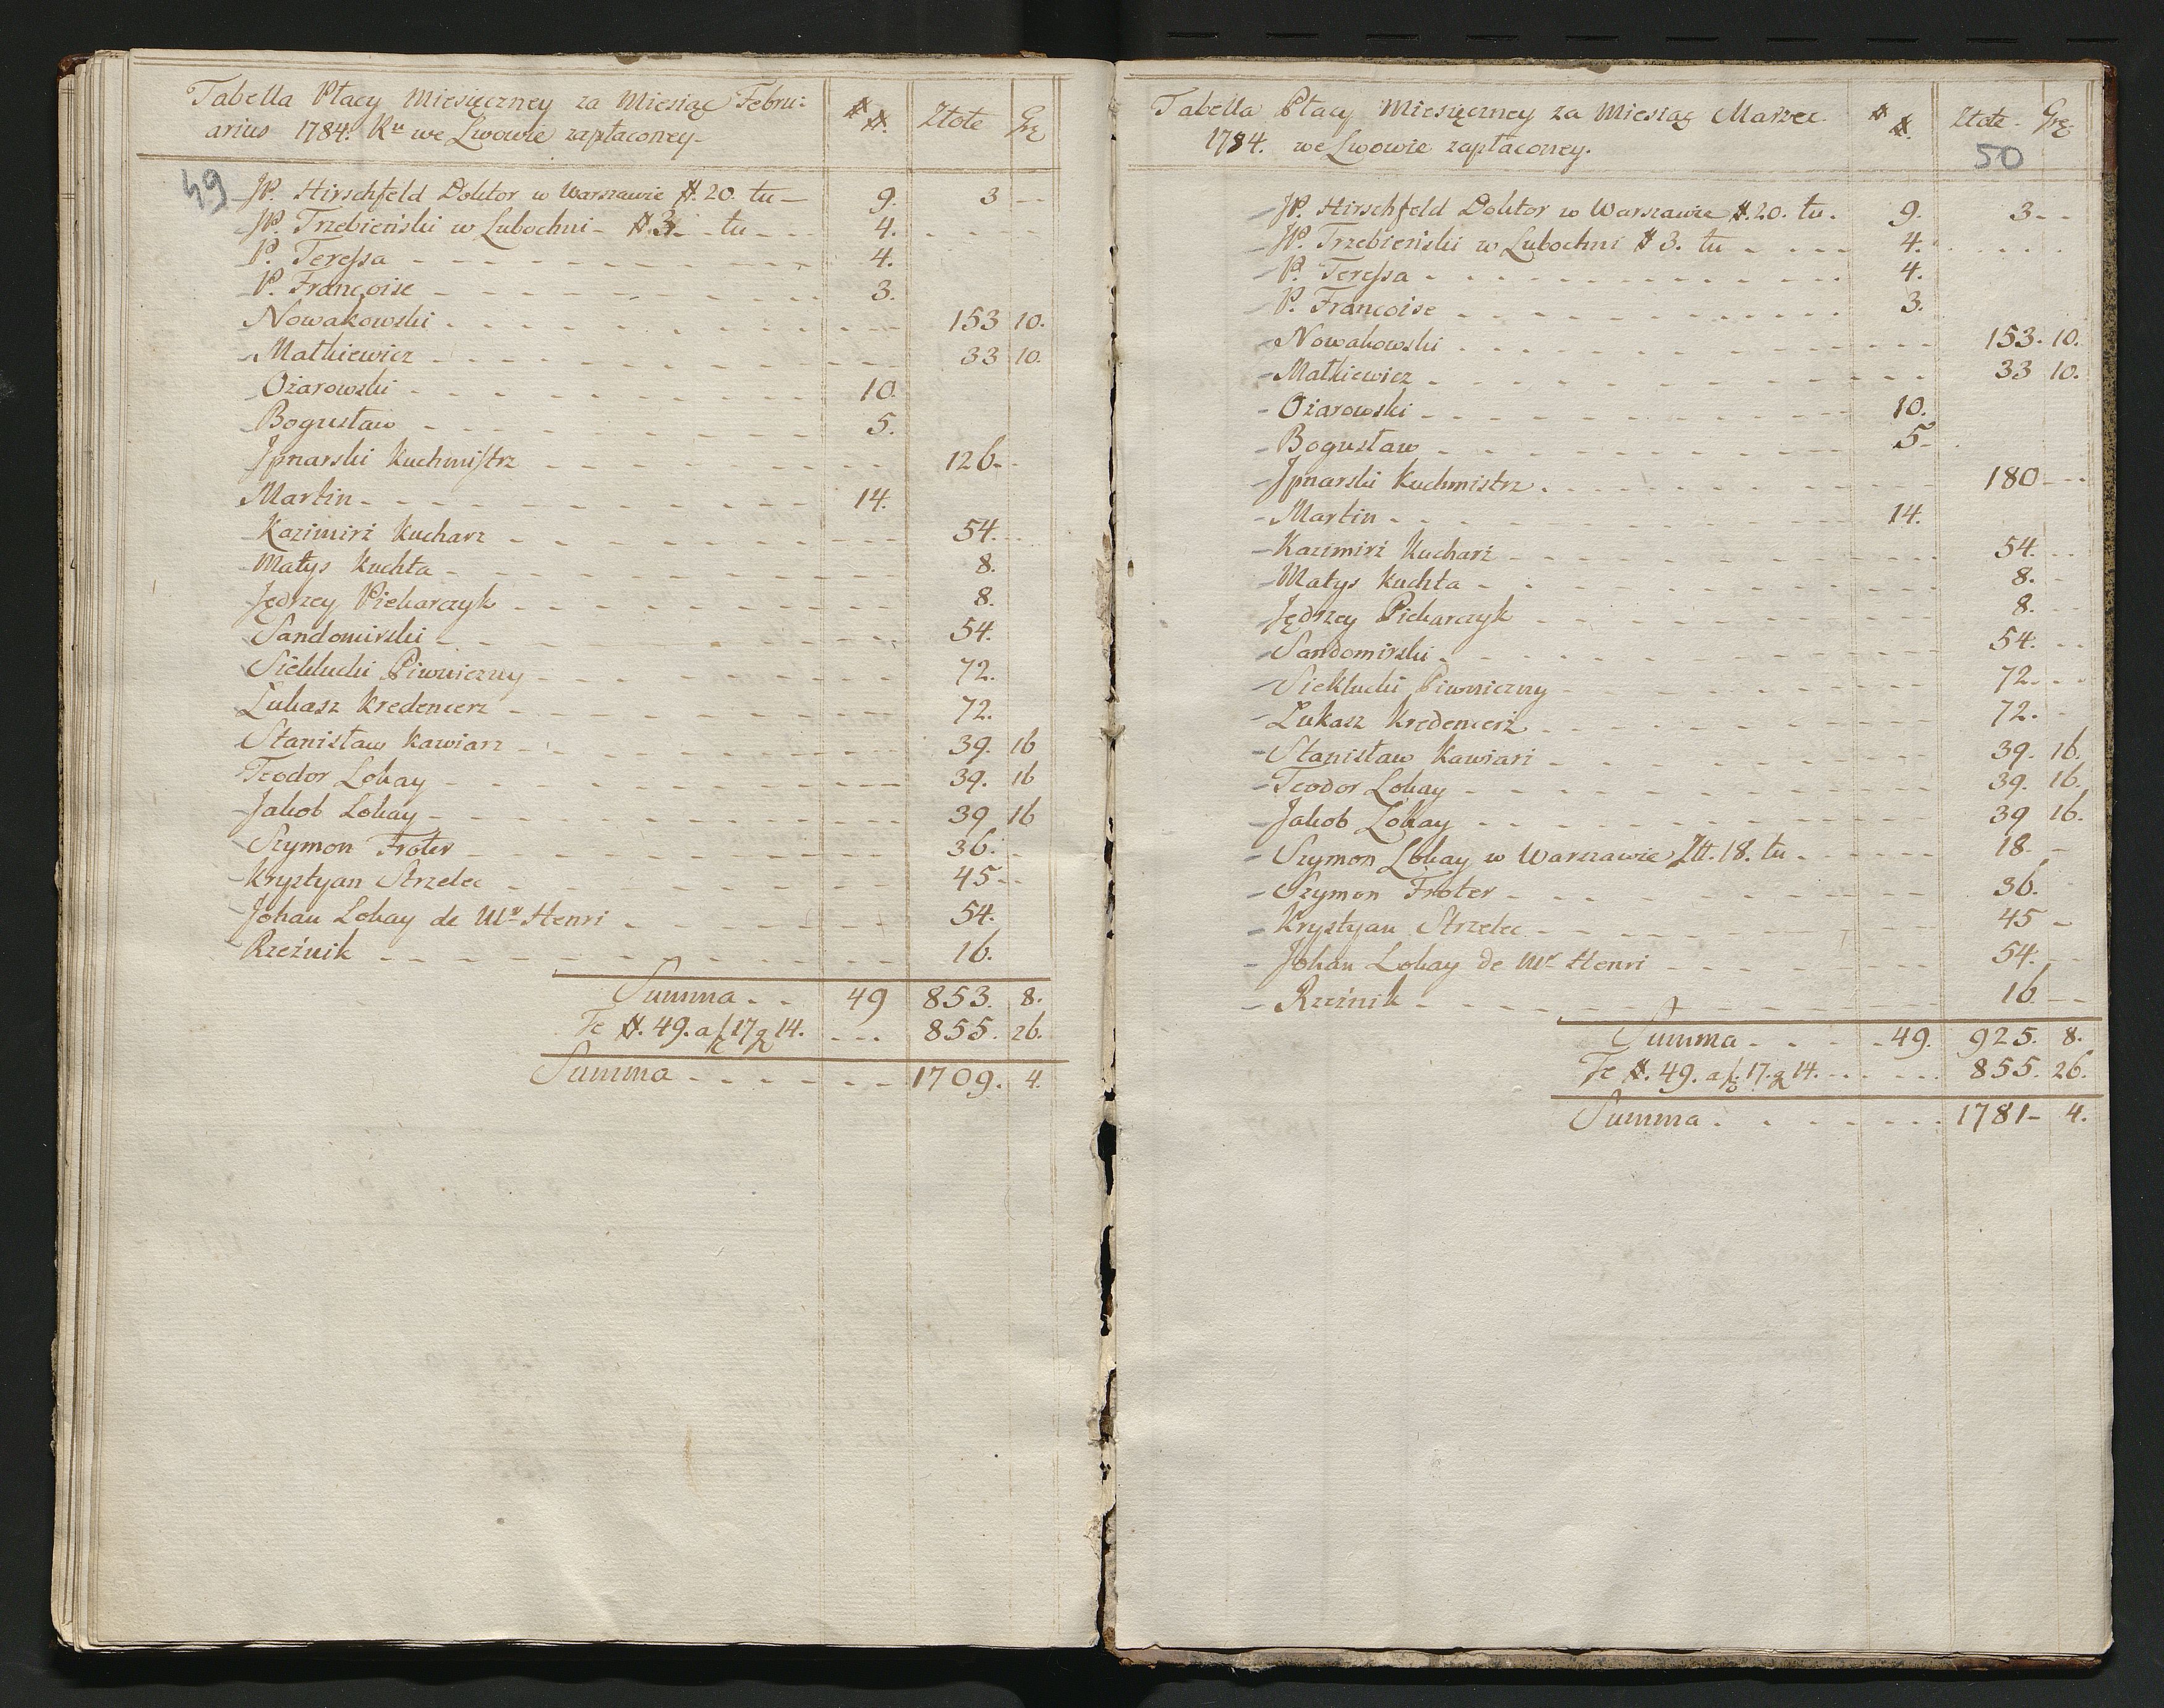 Tabella Płacy Miesięczney za Miesiąc Febru:
arius 1784. Ru we Lwowie zapłaconey.
## Złote Grz
49
JP. Hirschfeld Doktor w Warszawie #. 20. tu 9. 3
JP. Trzebieński w Lubochni #. 3. tu 4.
P. Teressa 4.
P. Françoise 3.
Nowakowski 153 10.
Matkiewicz 33 10.
Ożarowski 10.
Bogusław 5.
Jpnarski Kuchmistrz 126.
Martin 14.
Kazimirz Kucharz 54.
Matys Kuchta 8.
Jędrzey Piekarczyk 8.
Sandomirski 54.
Siekłucki Piwniczny 72.
Łukasz Kredencerz 72.
Stanisław Kawiarz 39. 16
Teodor Lokay 39. 16
Jakob Lokay 39 16
Szymon Froter 36.
Krystyan Strzelec 45
Johan Lokay de Mr Henri 54.
Rzeźnik 16.
Summa 49 853. 8.
Te #. 49. a f 17 g 14. 855. 26.
Summa 1709. 4.
Tabella Płacy Miesięczney za Miesiąc Marzec
1784. we Lwowie zapłaconey.
## Złote Grz
50
JP. Hirschfeld Doktor w Warszawie #. 20. tu. 9. 3
JP. Trzebieński w Lubochni # 3. tu 4.
P. Teressa 4.
P. Francoise 3.
Nowakowski 153. 10.
Matkiewicz 33 10.
Ożarowski 10.
Bogusław 5
Jpnarski Kuchmistrz 180
Martin 14.
Kazimirz Kucharz 54.
Matys Kuchta 8.
Jędrzey Piekarczyk 8.
Sandomirski 54.
Siekłucki Piwniczny 72.
Łukasz Kredencerz 72.
Stanisław Kawiarz 39. 16.
Teodor Lokay 39. 16.
Jakob Lokay 39 16.
Szymon Lokay w Warszawie Złł. 18. tu 18
Szymon Froter 36.
Krystyan Strzelec 45
Johan Lokay de Mr Henri 54.
Rzeźnik 16
Summa 49. 925. 8.
Te #. 49. a f. 17. g 14. 855. 26.
Summa 1781 4.